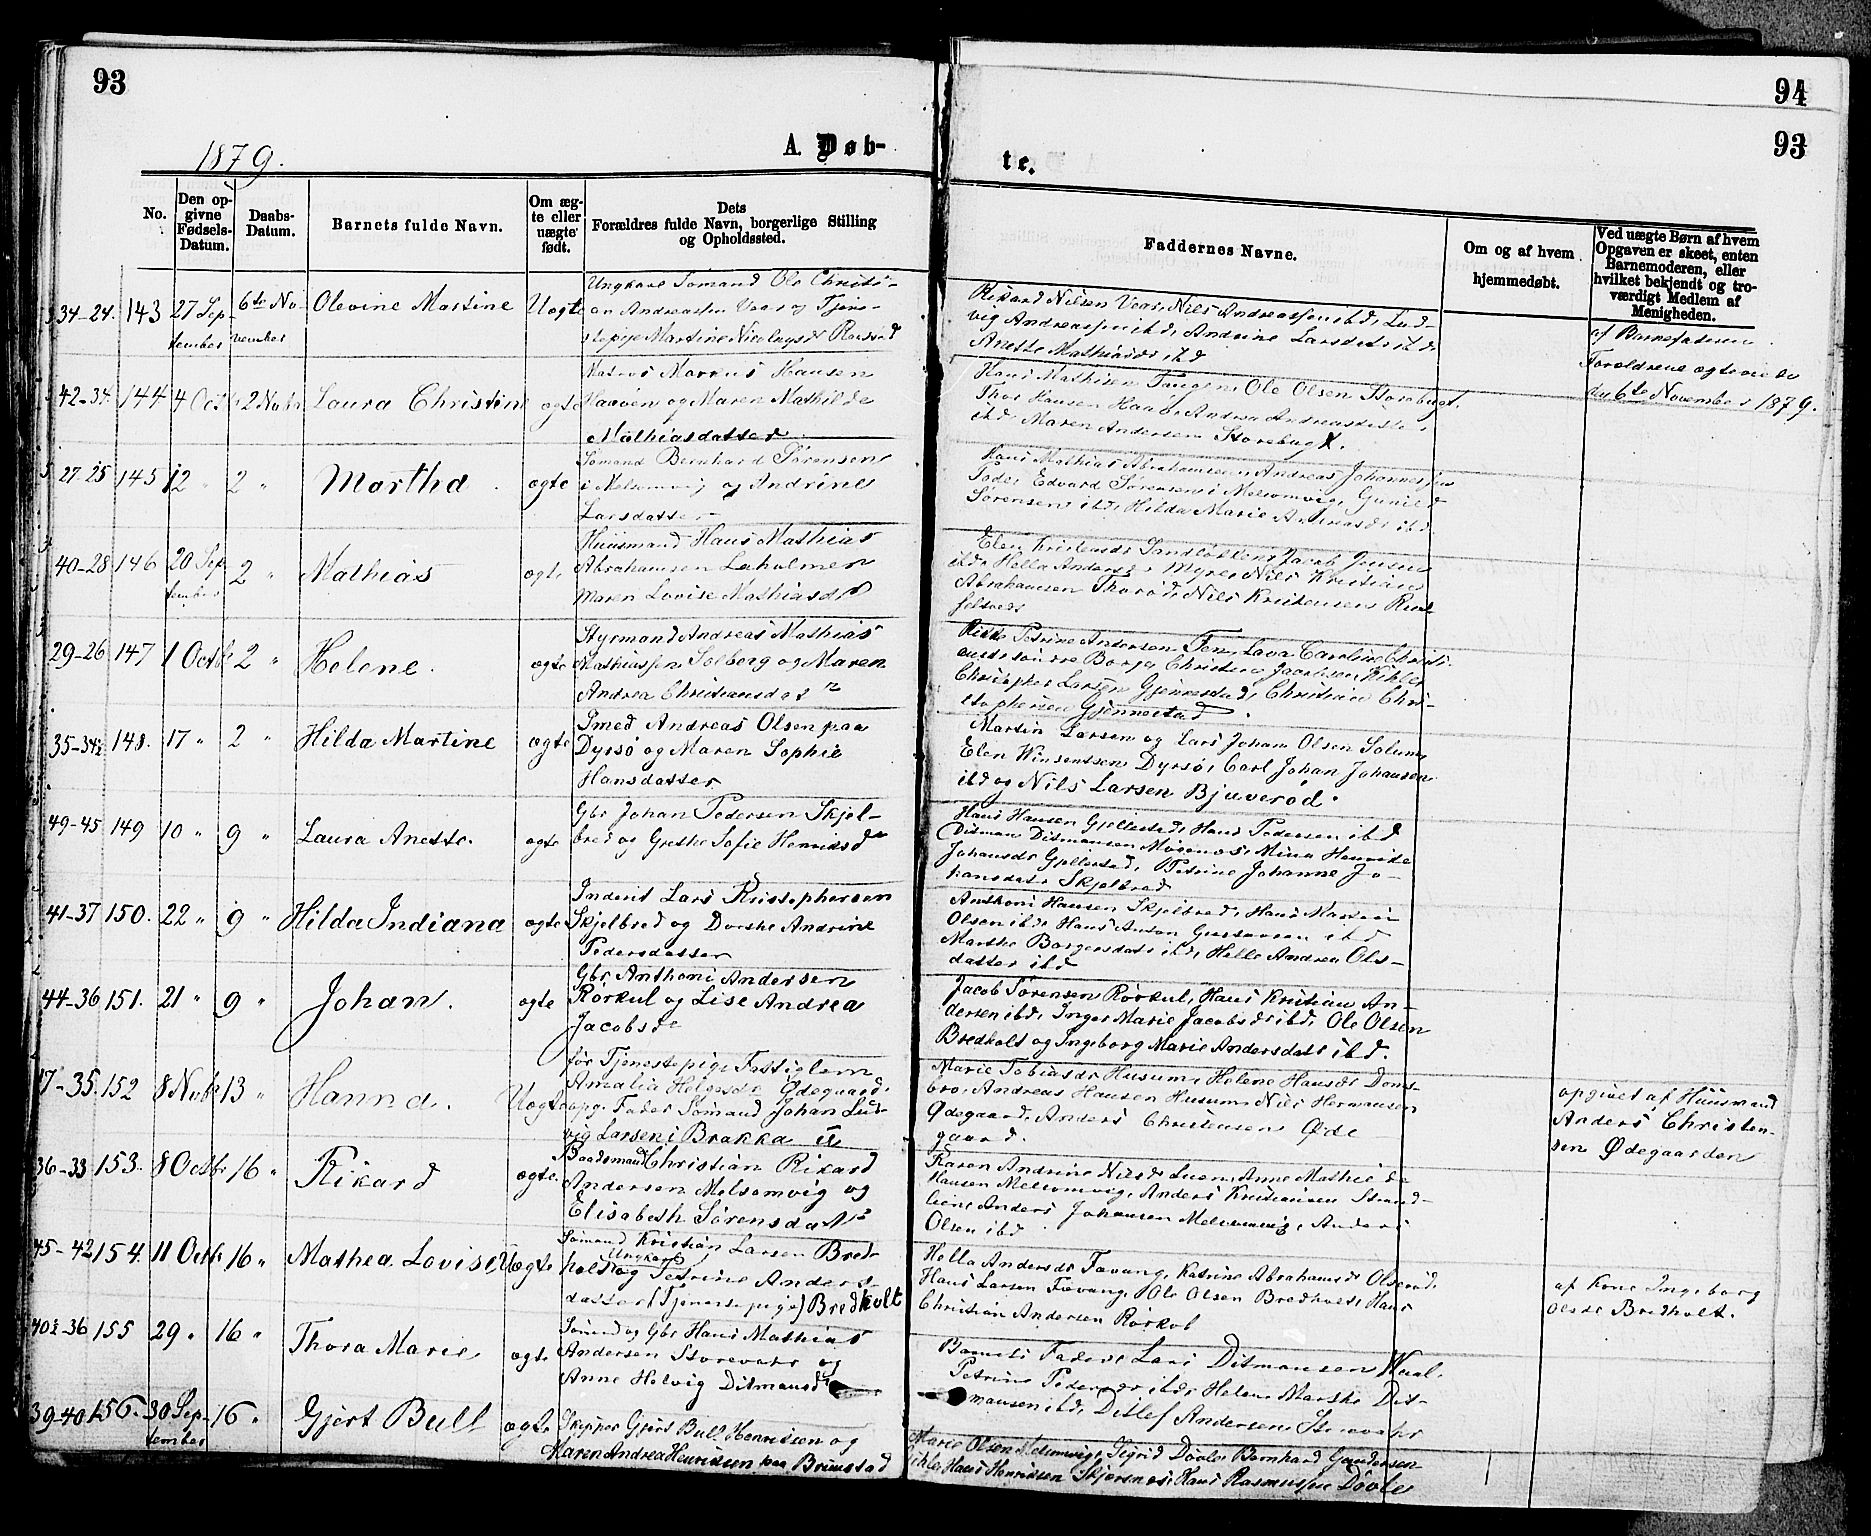 93
94
93
1879.
A. Døb-
te.
No.
Den op-
givne
Fødsels-
Datum.
Daabs-
Datum.
Barnets fulde Navn.
Om æg-
te eller
uægte
født.
Dets
Forældres fulde Navn, borgerlige Stilling
og Opholdssted.
Faddernes Navne.
Om og af hvem
hjemmedøbt.
Ved uægte Børn af hvem
Opgaven er skeet, enten
Barnemoderen, eller
hvilket bekjendt og tro-
værdigt Medlem af
Menigheden.
34-24. 143 27 Sep-
tember 6te No-
vember Olevine Martine Uægte
Ungkarl Sømand Ole Christi-
an Andreassen Vear og Tjene-
stepige Martine Nicolaysdr
Rikard Nilsen Vear, Nils Andreassen ibd, Lud-
vig Andreassen ibd, Andrine Larsdatr ibd
Anette Mathiasdr ibd
af Barnefaderen.
Forældrene ægteviede
den 6te November 1879.
42-34. 144 4 Octb 2 Novbr Laura Christine ægte
Matros Markus Hansen
Haaven og Maren Mathilde
Mathiasdatter
Hans Mathisen Tangen, Ole Olsen Storebugt,
Thor Hansen Andrea
ibd Maren Andersen Storebugt.
27-25 145 12 " 2 " Martha ægte
Sømand Bernhard Sørensen
i Melsomvig og Andrine
Larsdatter
Hans Mathias Abrahamsen, Andreas Johannessen
Edvard Sørensen i Melsomvig,
Sørensen ibd, Hilda Marie ibd
40-28 146 20 Sep-
tember 2 " Mathias ægte
Huusmand Hans Mathias
Abrahamsen Leholmen
Maren Lovise Mathiasdr
Elen Jacob Jensen
ibd, Hella Andersdr Myre, Nils Kristian
Abrahamsen Thorød, Nils Kristensen
29-26 147 1 Octb 2 " Helene. ægte
Styrmand Andreas Mathias
Mathiassen Solberg og Maren
Andrea Christiansdatr
Petrine Andersen Fen, Lava Caroline Christi-
Borge, Christian Jacobsen
Christopher Larsen Gjennestad, Christian Chri-
stophersen Gjennestad.
35-34½ 148. 17 " 2 " Hilda Martine ægte
Smed Andreas Olsen paa
Dyrsø og Maren Sophie
Hansdatter
Martin Larsen og Lars Johan Olsen Solum,
Elen Winsentsen Dyrsø, Carl Johan Johansen
ibd og Nils Larsen Bjuerød.
49-45 149 10 " 9 " Laura Anette. ægte
Gbr Johan Pedersen Skjel-
bred og Grethe Sofie Henriksdr
Hans Hansen Gjellestad, Hans Pedersen ibd
Ditman Ditmansen Mina
Johansdr Gjellestad, Petrine Johanne Jo-
hansdatr Skjelbred
41-37 150. 22 " 9 " Hilda Indiana ægte
Inderst Lars Kristophersen
Skjelbred og Dorthe Andrine
Pedersdatter
Anthoni Hansen Skjelbred, Hans Martin
Olsen ibd, Hans Anton Gustavsen ibd
Marthe Borgersdatr ibd, Helle Andrea Ols-
datter ibd
44-36 151. 21 " 9 " Johan. ægte
Gbr Anthoni Andersen
Rørkul og Lise Andrea
Jacobsdr
Jacob Sørensen Rørkul, Hans Kristian An-
dersen ibd, Inger Marie Jacobsdr ibd, Ole Olsen
Bredholt og Ingeborg Marie Andersdatr ibd.
47-35. 152 8 Novb 13 " Hanna. Uægte
før Tjenestepige, Fattiglem
Amalia Helgesdr Ødegaard,
opg. Fader Sømand Johan Lud-
vig Larsen i Brakka
Marie Tobiasdr Husum, Helene Hansdr
Andreas Hansen Husum, Nils Hermansen
Ødegaard, Anders Christensen Øde
gaard.
opgivet af Huusmand
Anders Christen-
sen Ødegaarden
36-33 153. 8 Octbr 16 " Rikard ægte.
Baadsmand Christian Rikard
Andersen Melsomvig og
Elisabeth Sørensdatr
Karen Andrine Nilsdr Luen, Anne Mathilde
Hansen Melsomvig, Anders Kristiansen Strand-
Anders Johansen Melsomvig, Anders
Olsen ibd
45-42 154. 11 Octb 16 " Mathea Lovise Uægte
Sømand Kristian Larsen Bred-
holt Ungkarl og Petrine Anders-
datter (Tjenestepige) Bredholt
Hella Andersdr Fævang, Katrine Abrahamsdr
Hans Larsen Fævang, Ole Olsen Bredholt, Hans
Christian Andersen Rørkol
af Kone Ingeborg
Olsdr Bredholt.
40½-36 155 29 " 16 " Thora Marie ægte
Sømd og Gbr Hans Mathias
Andersen Storevahr og
Anne Helvig Ditmansdr
Barnets Fader, Lars Ditmansen Hval,
Petrine Pedersdr ibd, Helene Marthe Dit-
mansen ibd, Ditlef Andersen Storevahr
39-40 156. 30 Sep-
tember 16 " Gjert Bull ægte
Skipper Gjert Bull Henriksen og
Maren Andrea Henriksen paa Brunstad
Marie Olsen Melsomvig, Sigrid Døvle, Bernhard Gundersen
Hans Henriksen Skjersnes, Hans Rasmussen Døvle